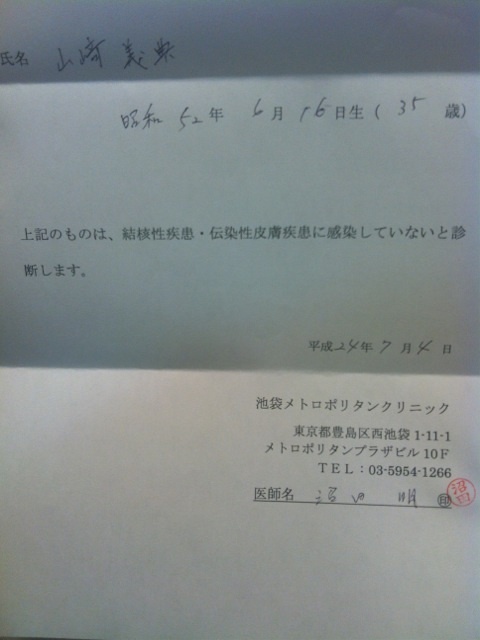 氏名 山崎 義典
昭和 52年 6月 16日生( 35 歳)
上記のものは、結核性疾患・伝染性皮膚疾患に感染していないと診
断します。
平成24年7月4日
池袋メトロポリタンクリニック
東京都豊島区西池袋1-11-1
メトロポリタンプラザビル10F
TEL:03-5954-1266
医師名 沼田 明 ㊞
沼田